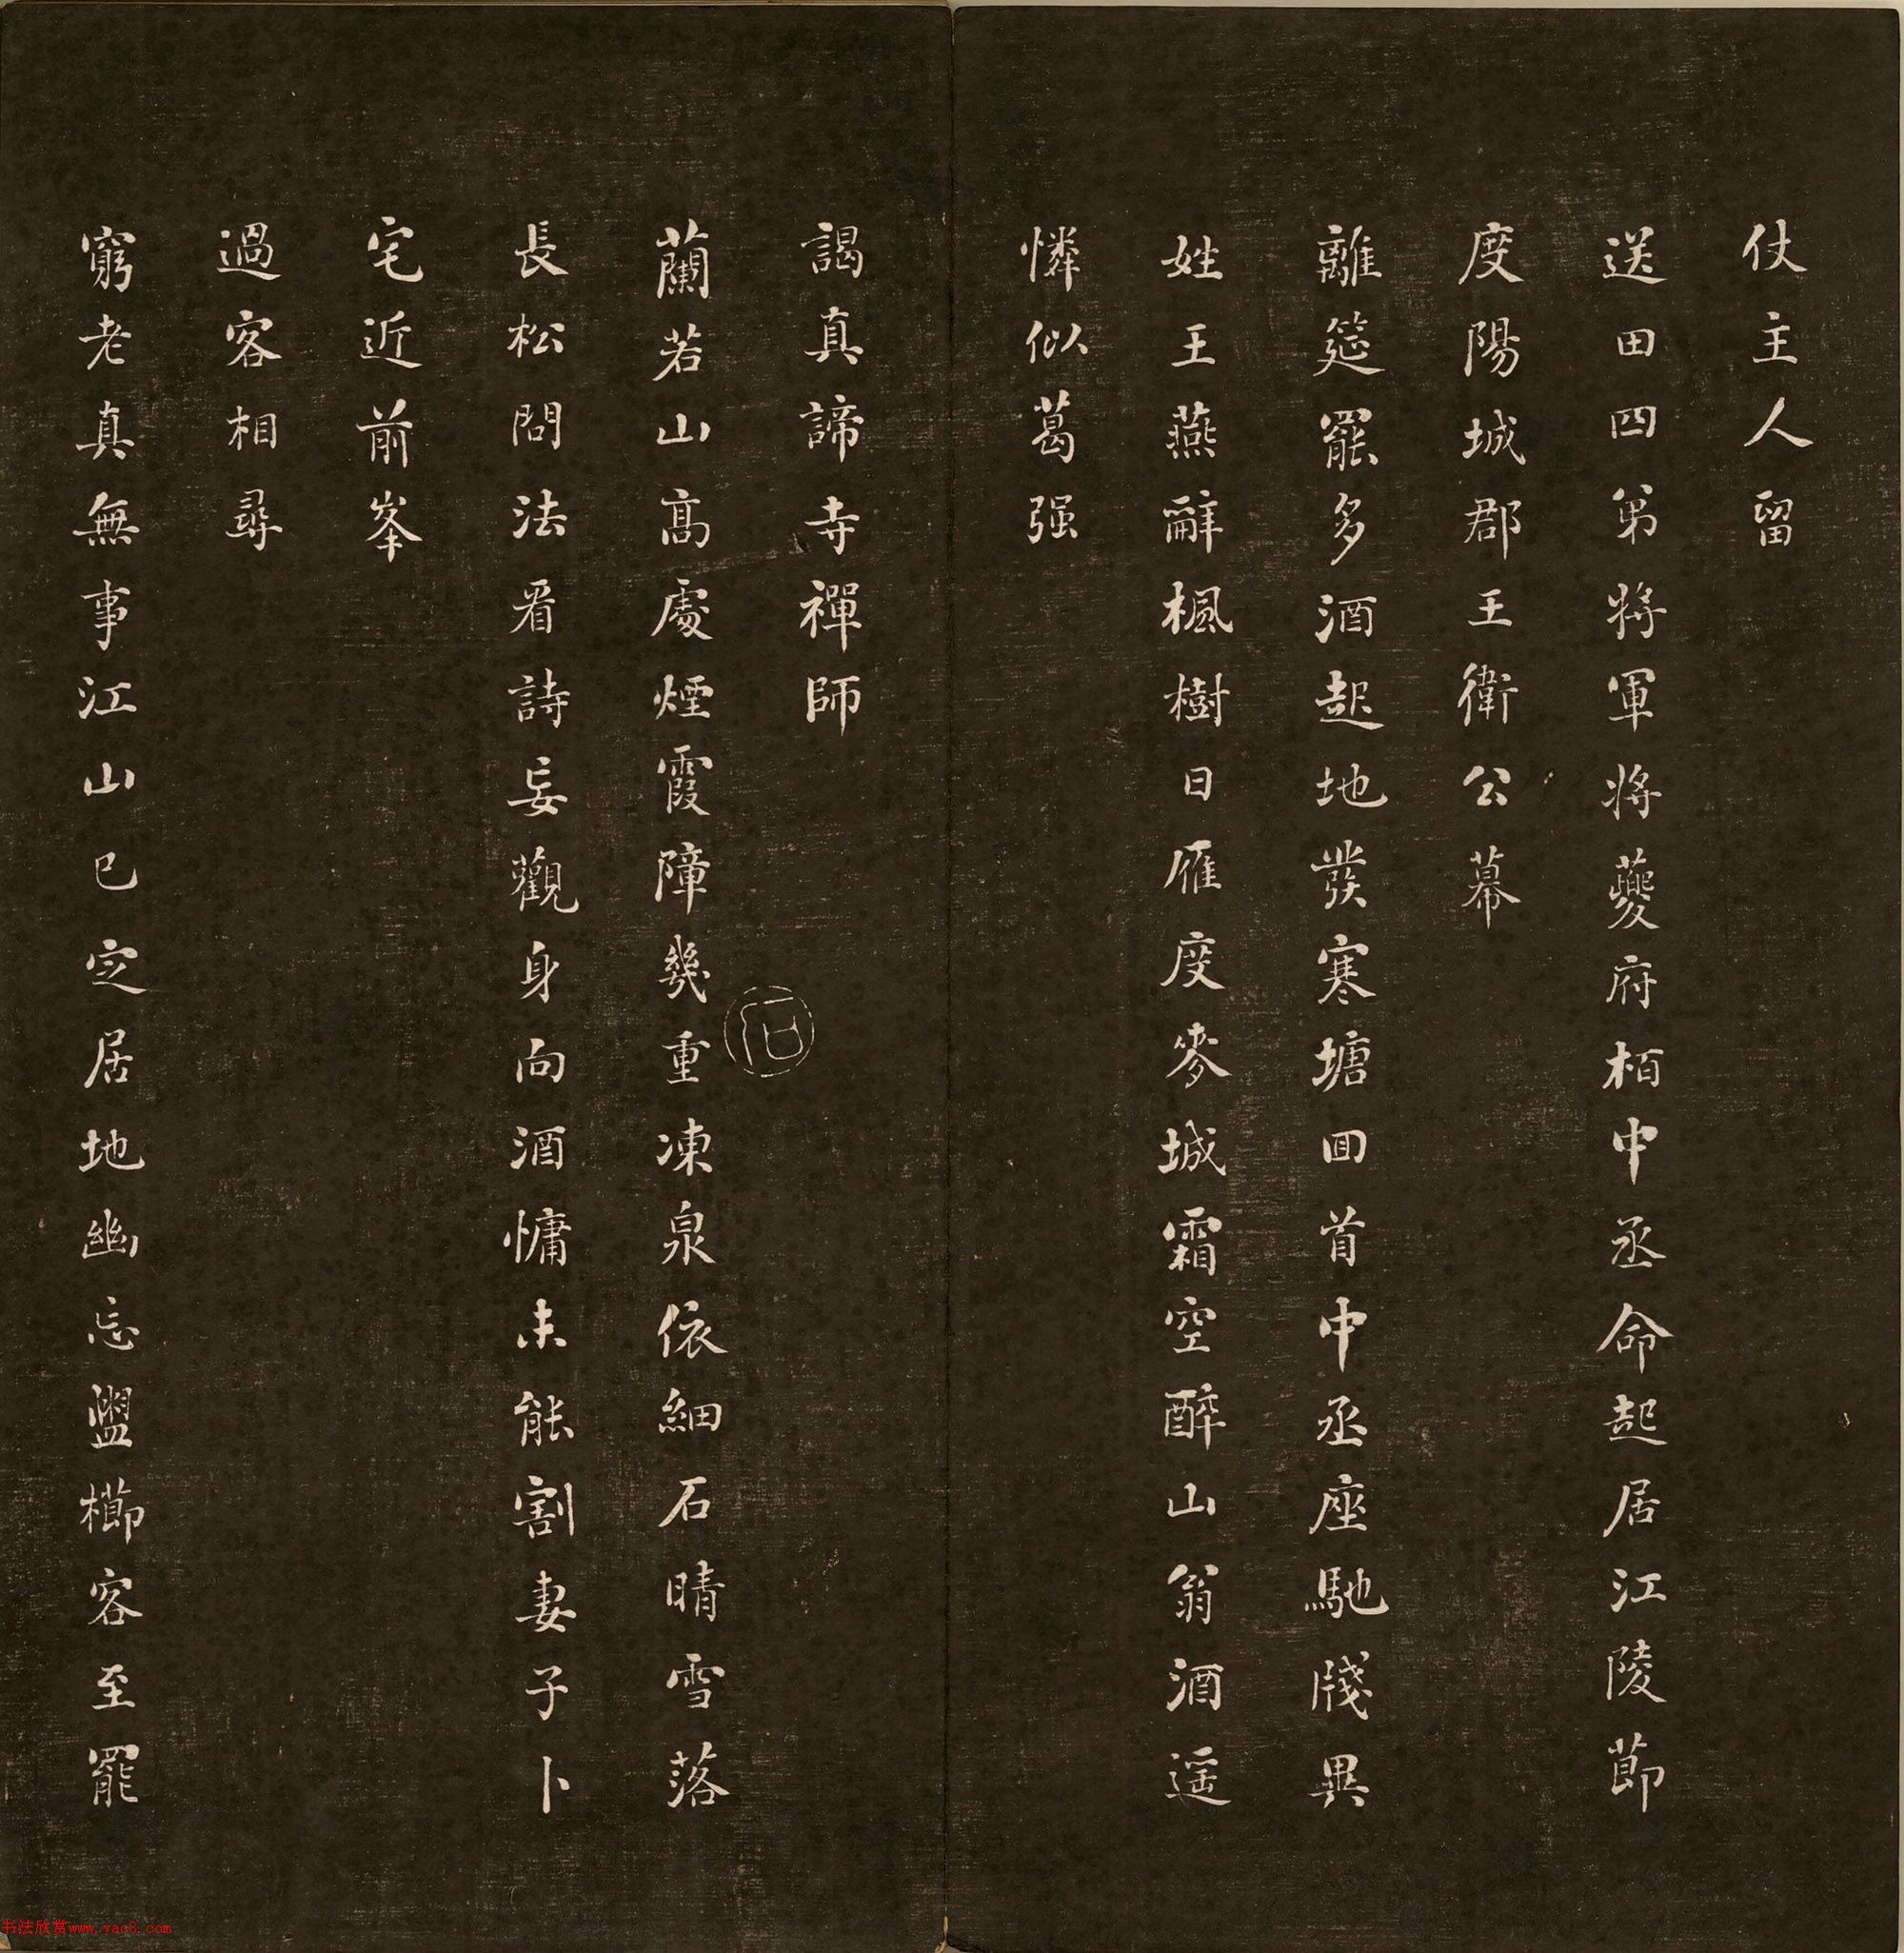 仗主人留
送田四弟將軍將夔府栢中丞命起居江陵節
度陽城郡王衛公幕
離筵罷多酒起地發寒塘囬首中丞座馳牋異
姓王燕辭楓樹日雁度麥城霜空醉山翁酒遥
憐似葛强
謁真諦寺禪師
蘭若山高處煙霞障幾重凍泉依細石晴雪落
長松問法看詩妄觀身向酒慵未能割妻子卜
宅近前峯
過客相尋
窮老真無事江山已定居地幽忘盥櫛客至罷
书法欣赏www.yac8.com